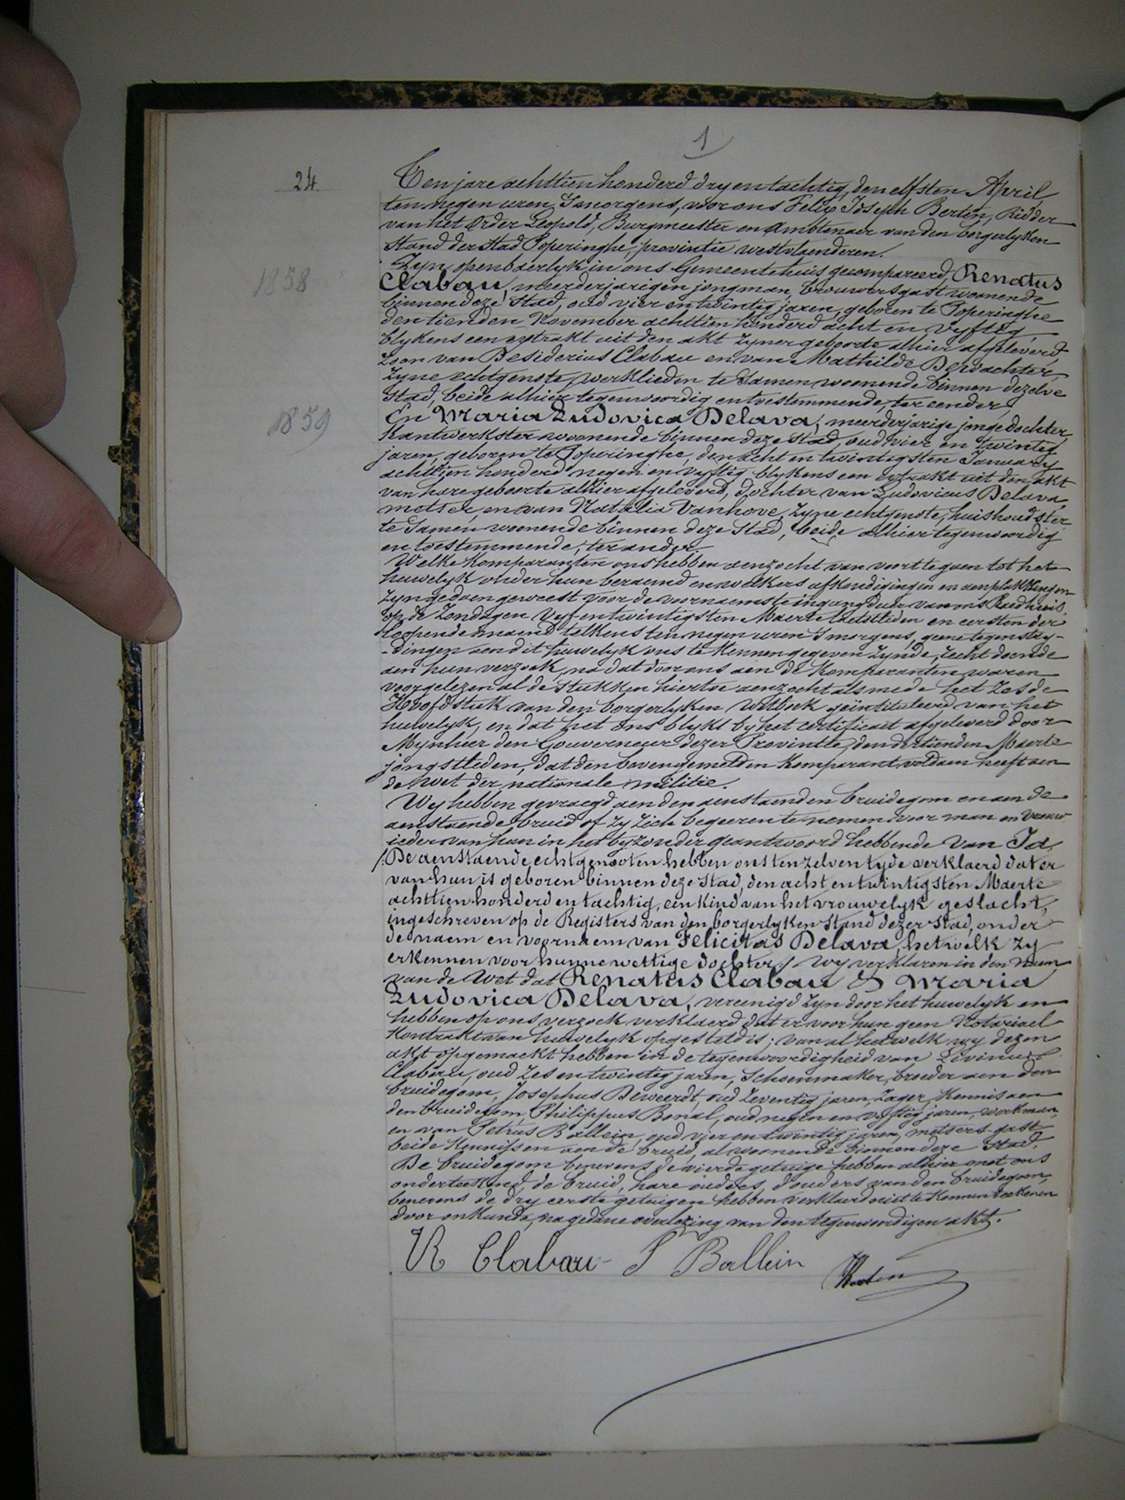 1
24
Ten jare achttien honderd dry en tachtig, den elfsten April
ten negen uren 's morgens, voor ons Felix Joseph Berten, Ridder
van het Order Leopold, Burgmeester en Ambtenaer van den borgerlyken
Stand der stad Poperinghe, provintie westvlaenderen.
Zyn openbaerlyk in ons Gemeentehuis gecompareerd, Renatus
1858
Clabau, meerderjarigen jongman, brouwersgast woonende
binnen deze Stad, oud vier en twintig jaren, geboren te Poperinghe
den tienden November achttien honderd acht en vyftig
blykens een extrakt uit den akt zyner geboorte alhier afgeleverd,
zoon van Desiderius Clabau en van Mathilde Dewachter
zyne echtgenote, werklieden te Samen woonende binnen dezelve
Stad, beide alhier tegenwoordig en toestemmende, ter eender
1859
En Maria Ludovica Delava, meerderjarige jonge dochter,
Kantwerkster woonende binnen deze Stad, oud vier en twintig
jaren, geboren te Poperinghe, den acht en twintigsten January
achttien honderd negen en vyftig blykens een extrakt uit den akt
van hare geboorte alhier afgeleverd, dochter van Ludovicus Delava
metser en van Natalia Vanhove, zyne echtgenote, huishoudster
te Samen woonende binnen deze Stad, beide alhier tegenwoordig
en toestemmende, ter ander.
Welke Komparanten ons hebben verzocht van voort te gaen tot het
huwelyk onder hun beraemd en welkers afkondigingen en aenplakkingen
zyn gedaen geweest voor de voornaemste ingangdeur van ons Raedhuis
op de Zondagen vyf en twintigsten Maerte laetstleden en eersten der
loopende maend telkens ten negen uren 's morgens, geene tegenstry-
dingen aen dit huwelyk ons te kennen gegeven zynde, recht doende
aen hun verzoek, na dat door ons aen de Komparanten waren
voorgelezen al de stukken hiertoe aenzocht alsmede het zesde
Hoofdstuk van den borgerlyken Wetboek geintituleerd van het
huwelyk, en dat het ons blykt by het certificaet afgeleverd door
Mynheer den Gouverneur dezer Provintie, den dertienden Maerte
jongstleden, dat den bovengemelden Komparant voldaen heeft aen
de wet der nationale militie.
Wy hebben gevraegd aen den aenstaenden bruidegom en aen de
aenstaende bruid of zy zich begeeren te nemen voor man en vrouw
ieder van hun in het byzonder geantwoord hebbende van Ja
De aenstaende echtgenooten hebben ons ten zelven tyde verklaerd dat er
van hun is geboren binnen deze stad, den acht en twintigsten Maerte
achttien honderd en tachtig, een kind van het vrouwelyk geslacht,
ingeschreven op de Registers van den borgerlyken Stand dezer stad, onder
de naem en voornaem van Felicitas Delava, het welk zy
erkennen voor hunne wettige dochter, wy verklaren in den naem
van de Wet dat Renatus Clabau & Maria
Ludovica Delava, vereenigd zyn door het huwelyk en
hebben op ons verzoek verklaerd dat er voor hun geen Notariael
Kontrakt van huwelyk opgesteld is; van al hetwelk wy dezen
akt opgemaekt hebben in de tegenwoordigheid van Livinus
Clabau, oud zes en twintig jaren, Schoenmaker, broeder aen den
bruidegom, Josephus Deweerdt, oud zeventig jaren, zager, Kennis aen
den bruidegom, Philippus Bonal, oud negen en vyftig jaren, werkman,
en van Petrus Ballein, oud vier en twintig jaren, metsers gast
beide Kennissen aen de bruid, al woonende binnen deze Stad
De bruidegom benevens de vierde getuige hebben alhier met ons
onderteekend, de bruid, hare ouders, d'ouders van den bruidegom,
benevens de dry eerste getuigen hebben verklaerd niet te Konnen teekenen
door onkunde, na gedane overlezing van den tegenwoordigen akt.
R Clabau P Ballein